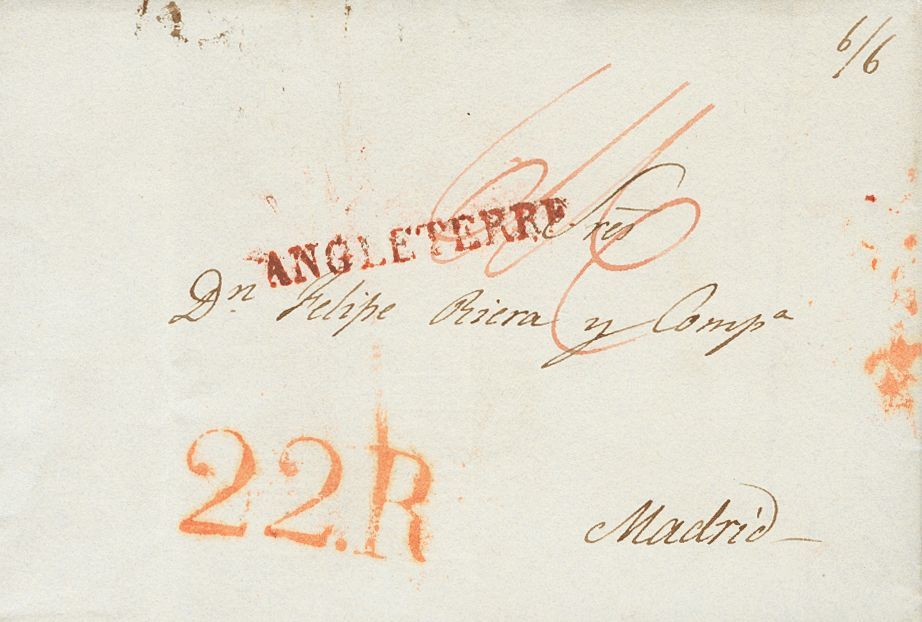 6/6
Sres
ANGLETERRE
Dn Felipe Riera y Compa
22.R
Madrid